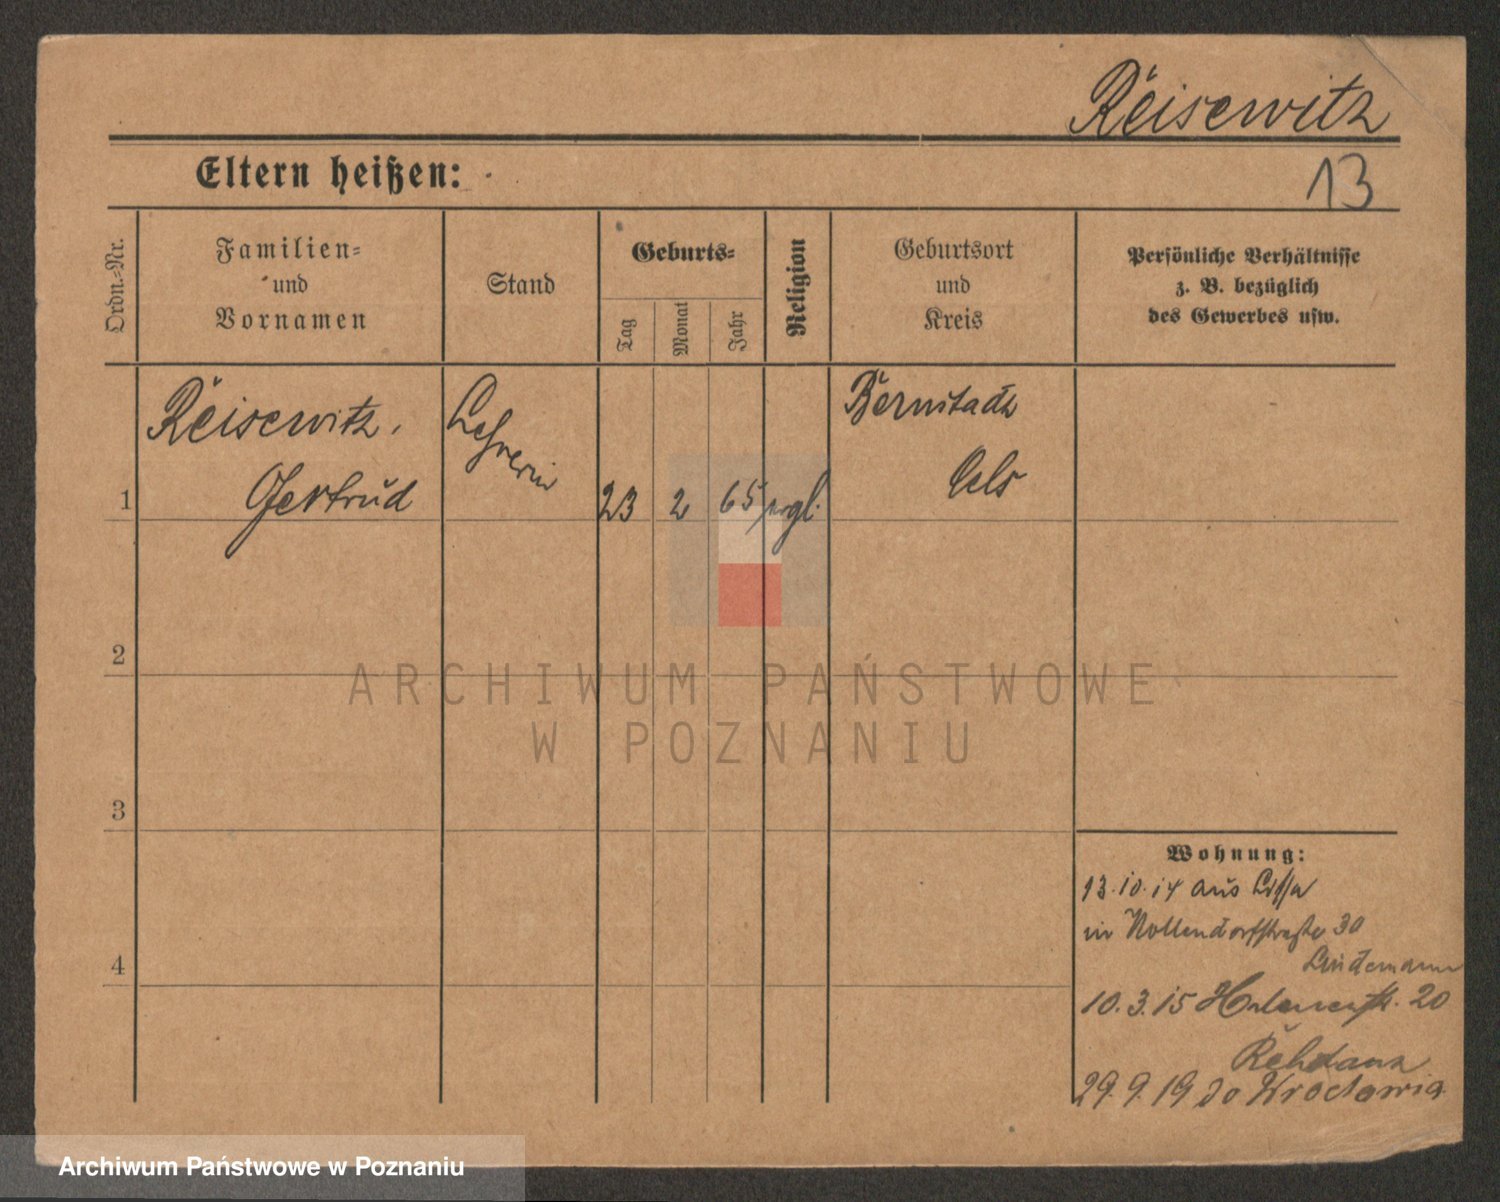 Reisewitz
Eltern heißen:
13
Ordn.=Nr.
Familien=
und
Vornamen
Stand
Geburts=
Tag
Monat
Jahr
Religion
Geburtsort
und
Kreis
Persönliche Verhältnisse
z. B. bezüglich
des Gewerbes usw.
1
Reisewitz,
Gertrud
Lehrerin
23 2 65
Bernstadt
Oels
2
3
4
ARCHIWUM PAŃSTWOWE
W POZNANIU
Wohnung:
13.10.14 aus Lissa
in Nollendorfstraße 30
Lindemann
10.3.15 20
Rehdanz
29.9.19 do Wrocławia
Archiwum Państwowe w Poznaniu